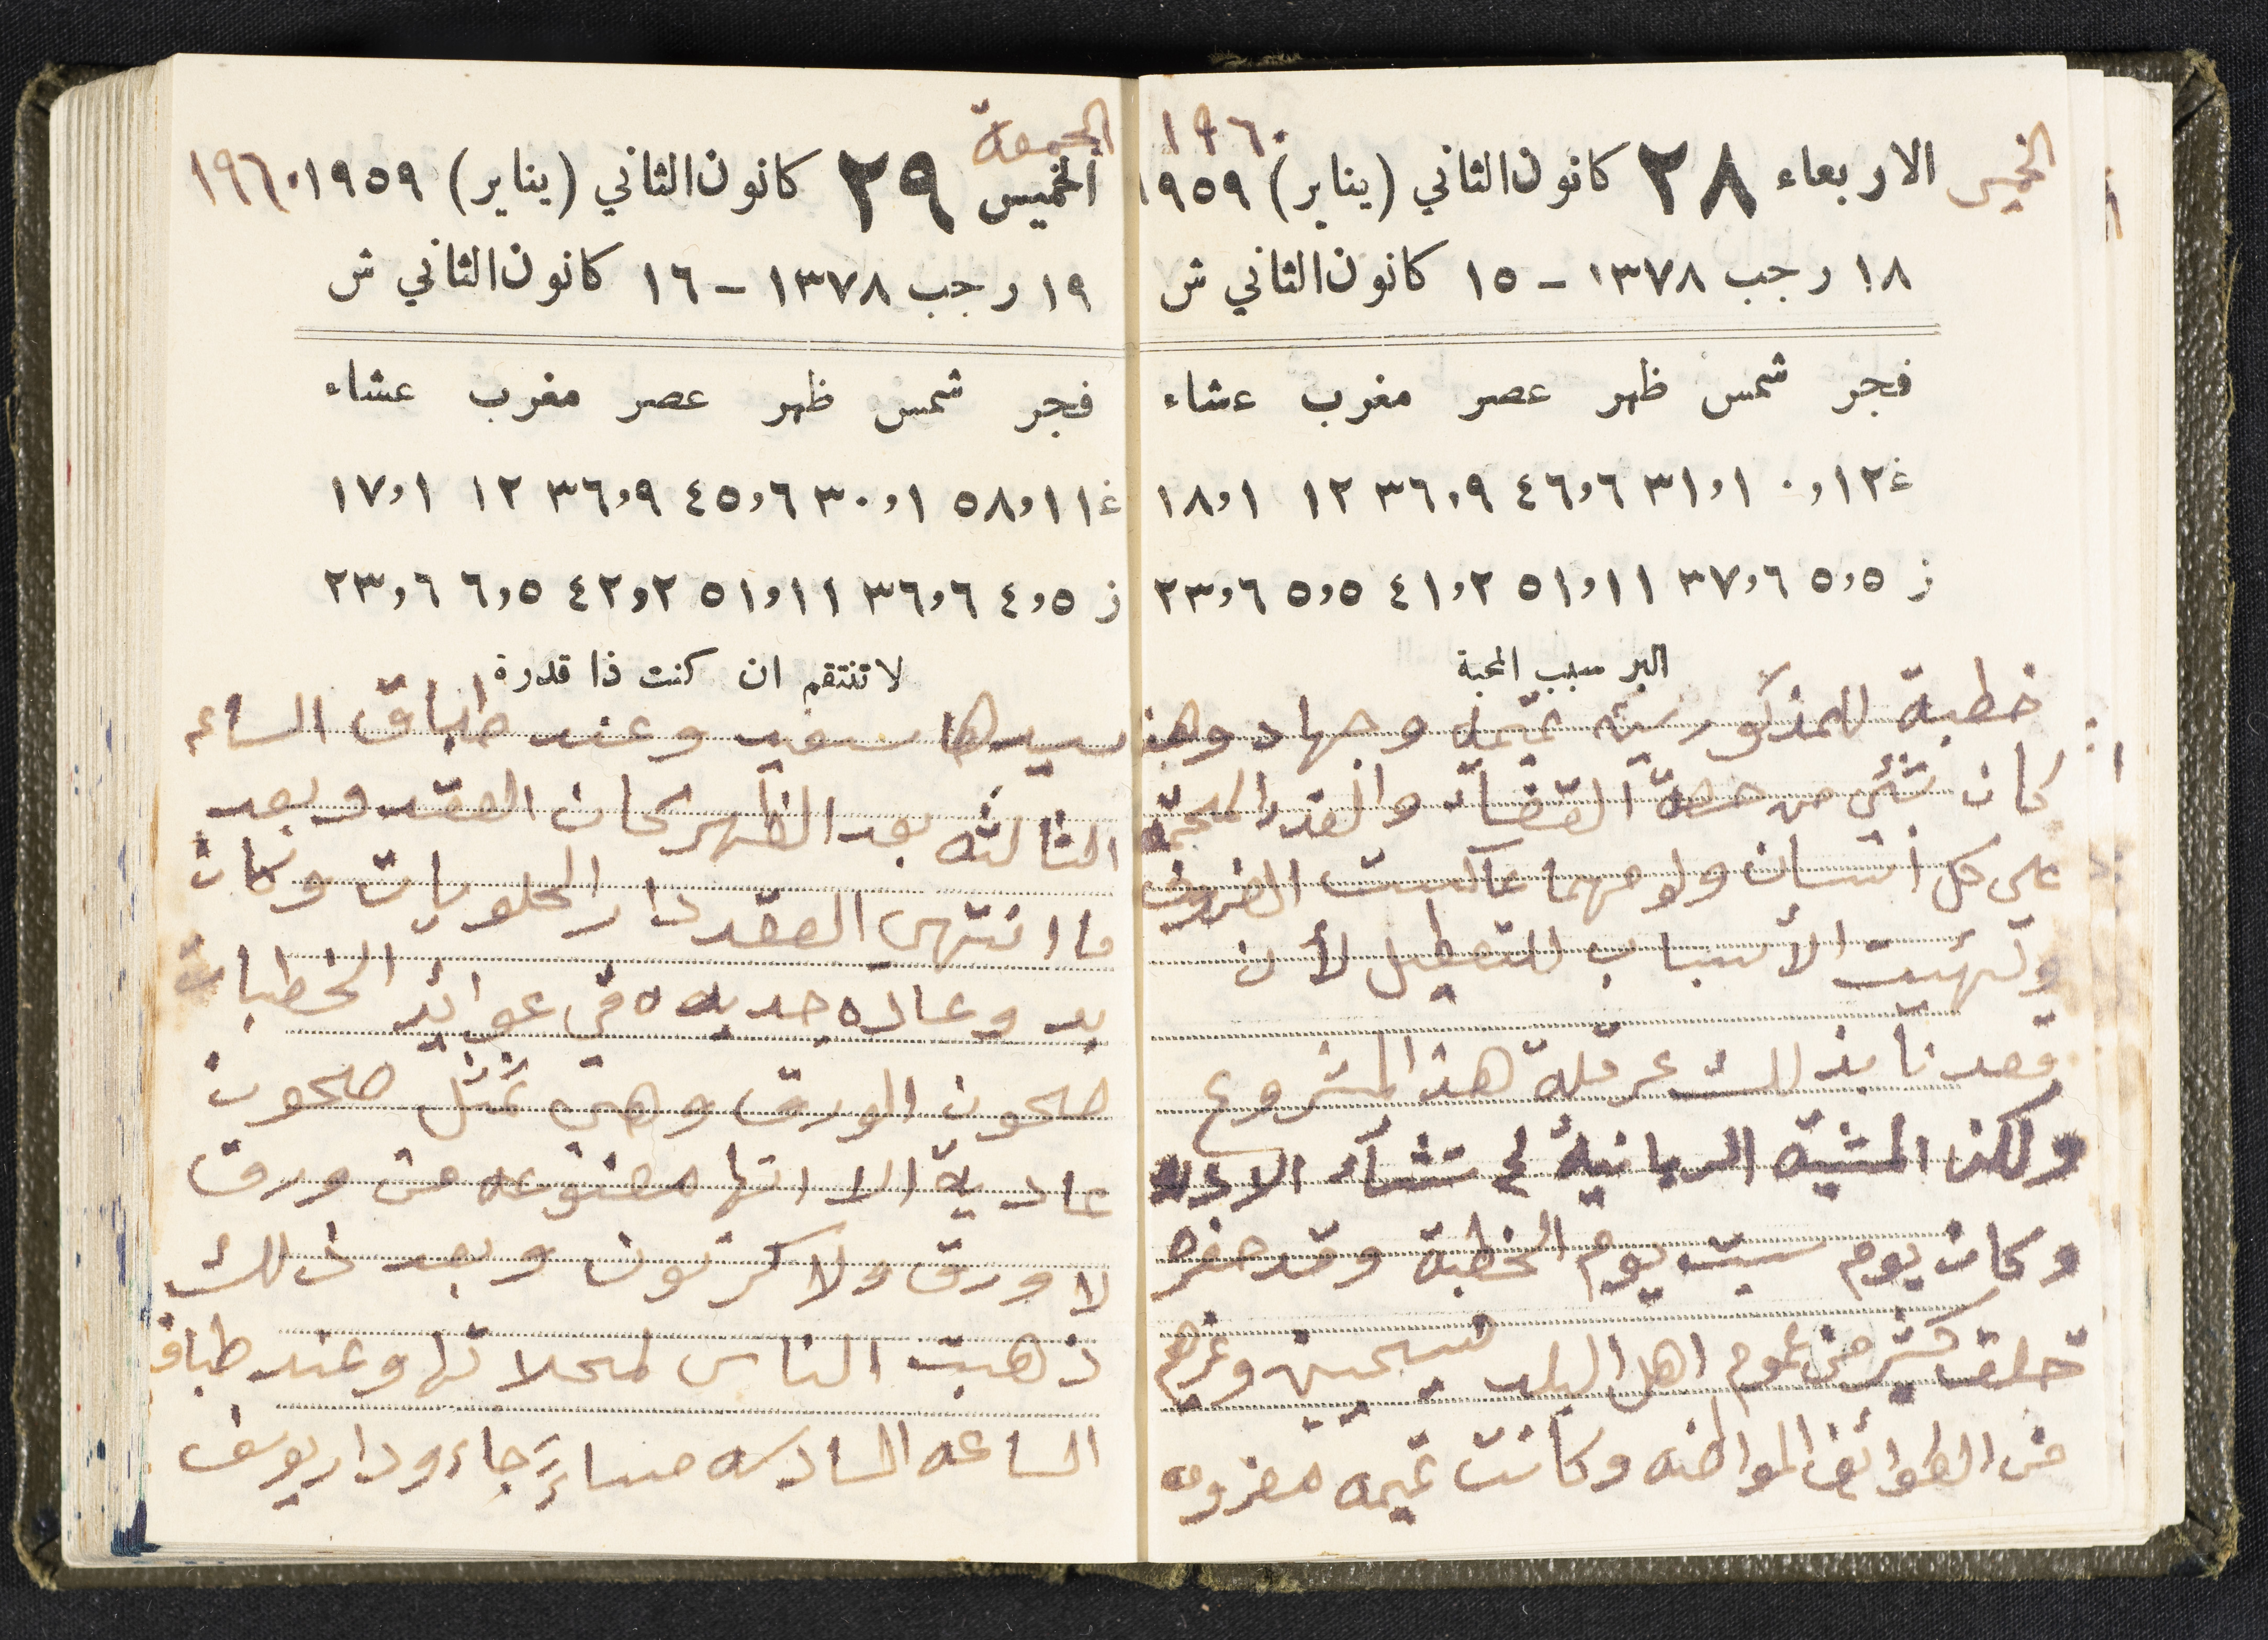 ١٩٦٠
الخميس الاربعاء ٢٨ كانون الثاني (يناير) ١٩٥٩
١٨ رجب ١٣٧٨ - ١٥ كانون الثاني ش
فجر شمس ظهر عصر مغرب عشاء
غ ١٢,٠ ٣١,١ ٤٦,٦ ٣٦,٩ ١٢ ١٨,١
ز ٥,٥ ٣٧,٦ ٥١,١١ ٤١,٢ ٥,٥ ٢٣,٦
البر سبب المحبة
خطبة للمذكورتين تميمه وجهاد وهذ
كان شئ من خصة القضاء والقدر المحتمه
على كل انسان ولو مهما عاكست الضروف
وتهئيت الأسباب للتعطيل لأن
قصدنا بذالك عرقلة هذا المشروع
ولكن المشيئة الربانية لم تشاء الا ذلك
وكان يوم سبت يوم الخطبة وقد حضره
خلق كثير من عموم اهل البلد مسيحين وغيرهم
من الطوائف المواطنه وكانت تميمه مفروحه
الجمعة
الخميس ٢٩ كانون الثاني (يناير) ١٩٥٩ ١٩٦٠
١٩ رجب ١٣٧٨ - ١٦ كانون الثاني ش
فجر شمس ظهر عصر مغرب عشاء
غ ٥٨,١١ ٣٠,١ ٤٥,٦ ٣٦,٩ ١٢ ١٧,١
ز ٤,٥ ٣٦,٦ ٥١,١١ ٤٢,٢ ٦,٥ ٢٣,٦
لا تنتقم ان كنت ذا قدرة
سيدها سعيد وعند طباق الساعه
الثالثه بعد الظهر كان العقد وبعد
ما انتهى العقد دار الحلويات وكان
بد وعاده جديده في عوائد الخطبات
صحون الورق وهي تمثل صحون
عادية الا انها مصنوعه من ورق
لا ورق ولا كرتون وبعد ذلك
ذهبت الناس لمحلاتها وعند طباق
الساعه السادسه مساءً جاءو دار يوسف